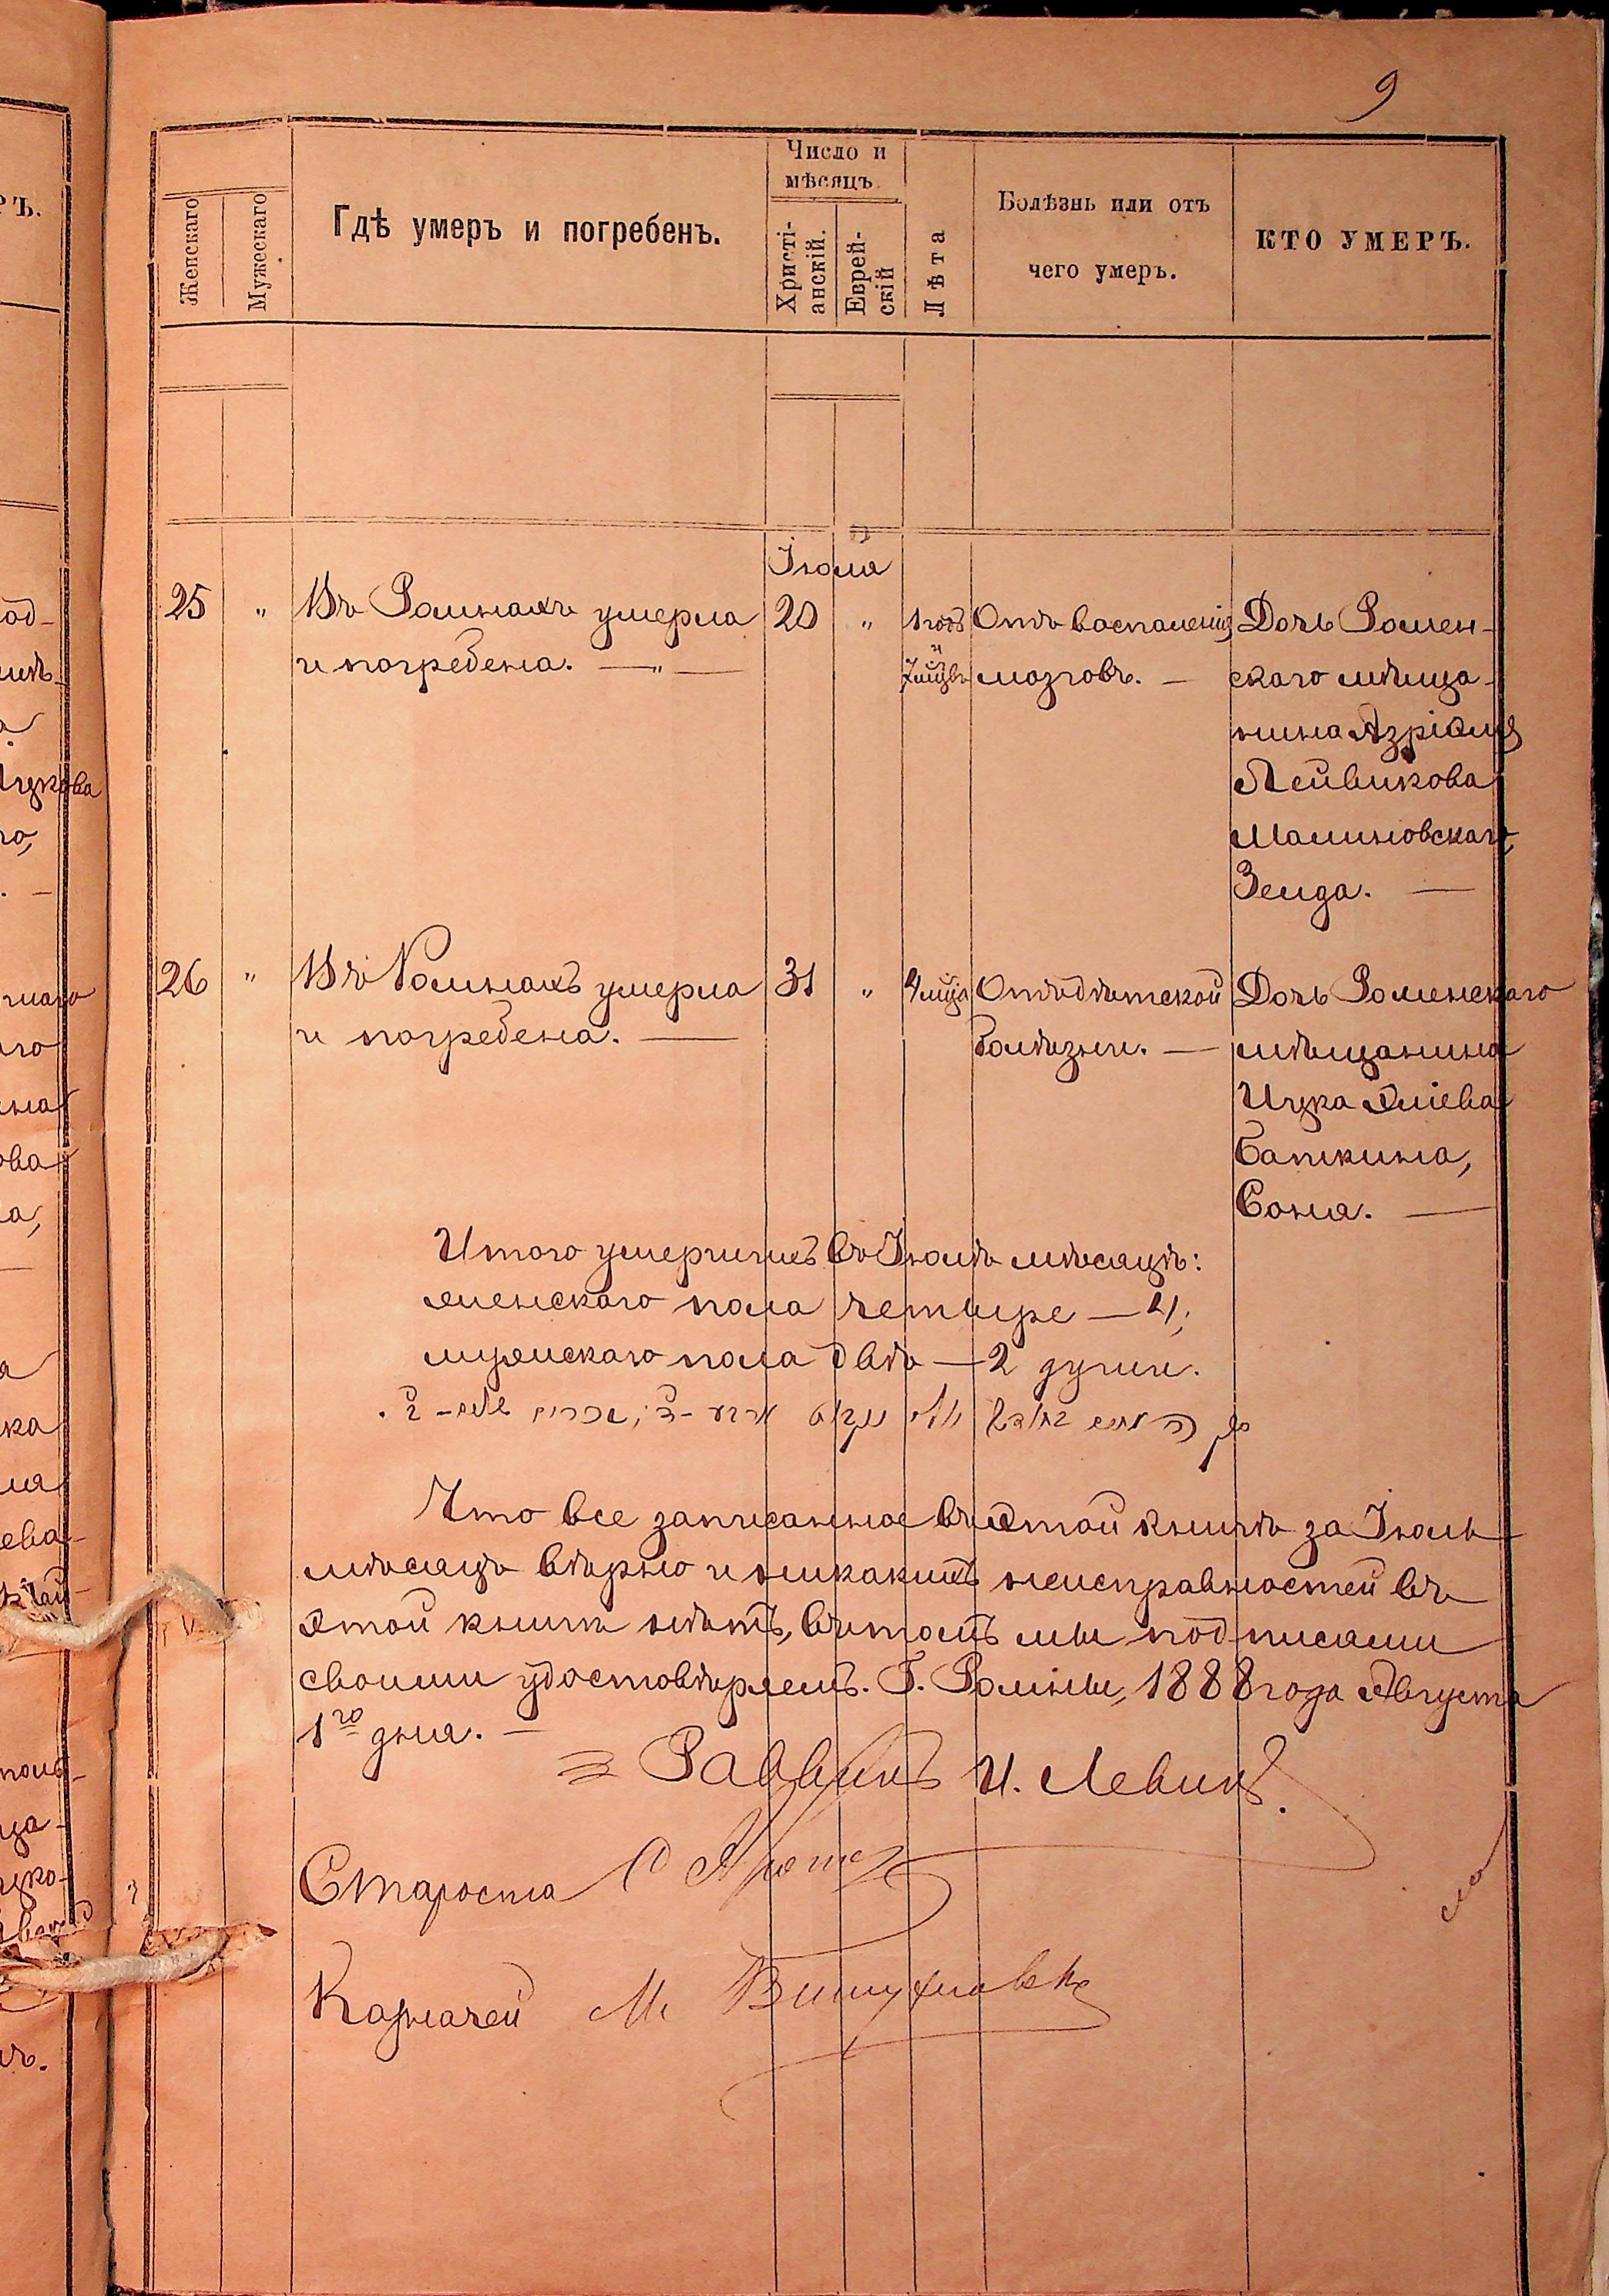 9
Женскаго
Мужескаго
Гдѣ умеръ и погребенъ.
Число и
мѣсяцъ.
Христі-
анскій.
Еврей-
скій
Лѣта
Болѣзнь или отъ
чего умеръ.
КТО УМЕРЪ.
Іюля
25 " Въ Ромнахъ умерла 20 " 1 годъ Отъ воспаленія Дочь Ромен-
и погребена. — " — и 7 мцвъ мозговъ. — скаго мѣща-
нина Азріеля
Лейвикова
Малиновскаго,
Зелда. —
26 " Въ Ромнахъ умерла 31 " 4 мца Отъ дѣтской Дочь Роменскаго
и погребена. — болѣзни. — мѣщанина
Ицка Эліева
Баткина,
Соня. —
Итого умершихъ въ Іюлѣ мѣсяцѣ:
женскаго пола четыре — 4;
мужскаго пола двѣ — 2 души.
Что все записанное въ этой книгѣ за Іюль
мѣсяцъ вѣрно и никакихъ неисправностей въ
этой книгѣ нѣтъ, въ томъ мы подписями
своими удостовѣряемъ. Г. Ромны, 1888 года Августа
1го дня. —
Раввинъ И. Левинъ.
Староста
Казначей М